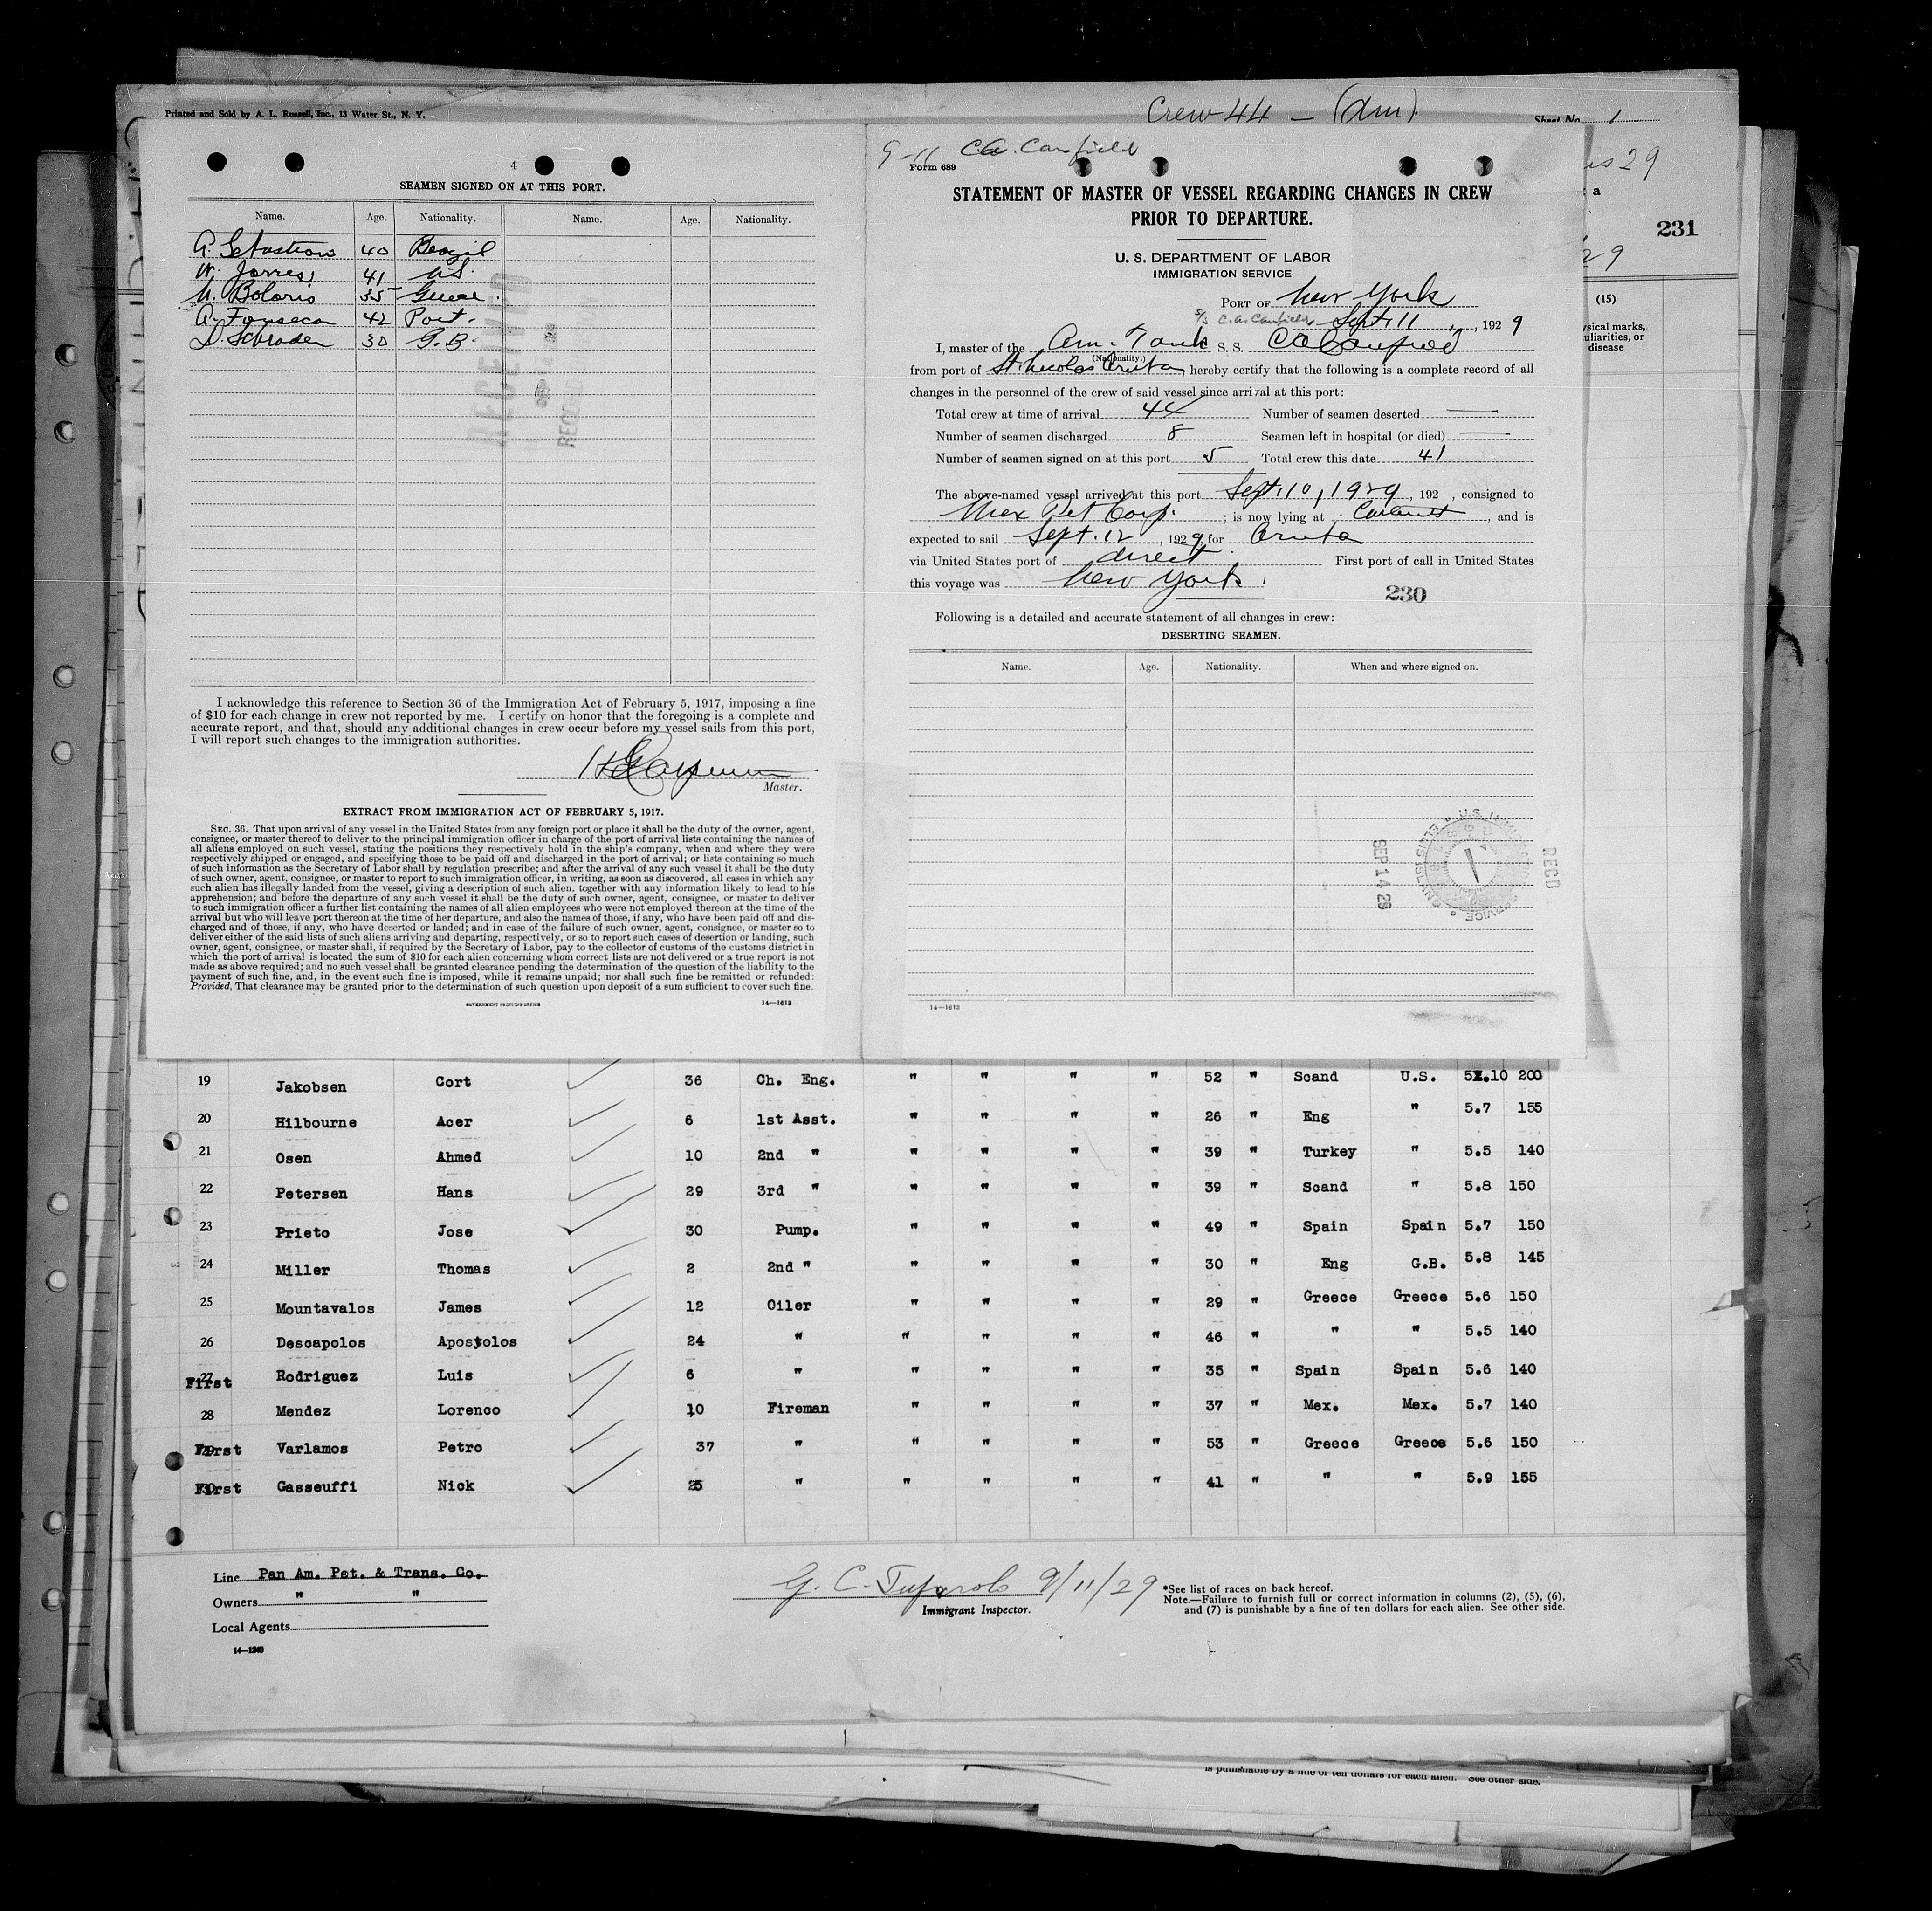 Printed and Sold by A. L. Russell, Inc., 13 Water St., N. Y.
Crew 44 — (Am)
Sheet No. 1
29
a
231
29
(15)
disease
4
SEAMEN SIGNED ON AT THIS PORT.
Name. Age. Nationality. Name. Age. Nationality.
A. 40 Brazil
41 U.S.
35 Greece.
A. Fonseca 42 Port.
Schrader 30 G.B.
RECEIVED
I acknowledge this reference to Section 36 of the Immigration Act of February 5, 1917, imposing a fine
of $10 for each change in crew not reported by me. I certify on honor that the foregoing is a complete and
accurate report, and that, should any additional changes in crew occur before my vessel sails from this port,
I will report such changes to the immigration authorities.
Master.
EXTRACT FROM IMMIGRATION ACT OF FEBRUARY 5, 1917.
SEC. 36. That upon arrival of any vessel in the United States from any foreign port or place it shall be the duty of the owner, agent,
consignee, or master thereof to deliver to the principal immigration officer in charge of the port of arrival lists containing the names of
all aliens employed on such vessel, stating the positions they respectively hold in the ship's company, when and where they were
respectively shipped or engaged, and specifying those to be paid off and discharged in the port of arrival; or lists containing so much
of such information as the Secretary of Labor shall by regulation prescribe; and after the arrival of any such vessel it shall be the duty
of such owner, agent, consignee, or master to report to such immigration officer, in writing, as soon as discovered, all cases in which any
such alien has illegally landed from the vessel, giving a description of such alien, together with any information likely to lead to his
apprehension; and before the departure of any such vessel it shall be the duty of such owner, agent, consignee, or master to deliver
to such immigration officer a further list containing the names of all alien employees who were not employed thereon at the time of the
arrival but who will leave port thereon at the time of her departure, and also the names of those, if any, who have been paid off and dis-
charged and of those, if any, who have deserted or landed; and in case of the failure of such owner, agent, consignee, or master so to
deliver either of the said lists of such aliens arriving and departing, respectively, or so to report such cases of desertion or landing, such
owner, agent, consignee, or master shall, if required by the Secretary of Labor, pay to the collector of customs of the customs district in
which the port of arrival is located the sum of $10 for each alien concerning whom correct lists are not delivered or a true report is not
made as above required; and no such vessel shall be granted clearance pending the determination of the question of the liability to the
payment of such fine, and, in the event such fine is imposed, while it remains unpaid; nor shall such fine be remitted or refunded:
Provided, That clearance may be granted prior to the determination of such question upon deposit of a sum sufficient to cover such fine.
GOVERNMENT PRINTING OFFICE 14—1613
9-11 C.A. Canfield
Form 689
STATEMENT OF MASTER OF VESSEL REGARDING CHANGES IN CREW
PRIOR TO DEPARTURE.
U. S. DEPARTMENT OF LABOR
IMMIGRATION SERVICE
PORT OF New York
S/S C.A. Canfield Sept 11, 1929
I, master of the Am. Tank S. S. C A Canfield
(Nationality.)
from port of St. Nicolas Aruba, hereby certify that the following is a complete record of all
changes in the personnel of the crew of said vessel since arrival at this port:
Total crew at time of arrival 44 Number of seamen deserted —
Number of seamen discharged 8 Seamen left in hospital (or died) —
Number of seamen signed on at this port 5 Total crew this date 41
The above-named vessel arrived at this port Sept. 10, 1929, 192 , consigned to
Mex Pet Corp. ; is now lying at Carteret, and is
expected to sail Sept. 12, 1929 for Aruba
via United States port of direct. First port of call in United States
this voyage was New York.
230
Following is a detailed and accurate statement of all changes in crew:
DESERTING SEAMEN.
Name. Age. Nationality. When and where signed on.
SEP 14 29
RECD
14—1613
19 Jakobsen Cort 36 Ch. Eng. " " " " 52 " Scand U.S. 200
20 Hilbourne Acer 6 1st Asst. " " " " 26 " Eng " 5.7 155
21 Osen Ahmed 10 2nd " " " " " 39 " Turkey " 5.5 140
22 Petersen Hans 29 3rd " " " " " 39 " Scand " 5.8 150
23 Prieto Jose 30 Pump. " " " " 49 " Spain Spain 5.7 150
24 Miller Thomas 2 2nd " " " " " 30 " Eng G.B. 5.8 145
25 Mountavalos James 12 Oiler " " " " 29 " Greece Greece 5.6 150
26 Descapolos Apostolos 24 " " " " " 46 " " " 5.5 140
27 First Rodriguez Luis 6 " " " " " 35 " Spain Spain 5.6 140
28 Mendez Lorenco 10 Fireman " " " " 37 " Mex. Mex. 5.7 140
29 First Varlamos Petro 37 " " " " " 53 " Greece Greece 5.6 150
30 First Gasseuffi Nick 25 " " " " " 41 " " " 5.9 155
Line Pan Am. Pet. & Trans. Co.
Owners " "
Local Agents
14—1240
G. C. 9/11/29
Immigrant Inspector.
*See list of races on back hereof.
Note.—Failure to furnish full or correct information in columns (2), (5), (6),
and (7) is punishable by a fine of ten dollars for each alien. See other side.
is punishable by a fine of ten dollars for each alien. See other side.